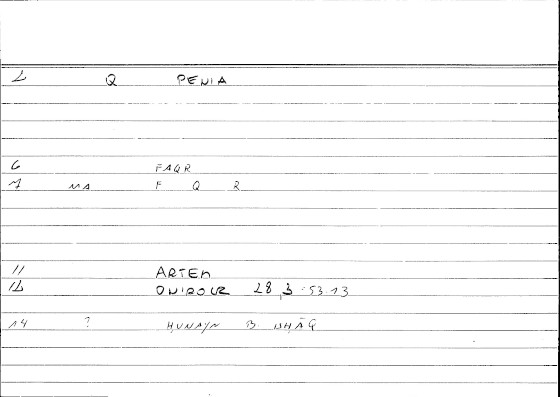 2 Q PENIA
6 FAQR
7 MA F Q R
11 ARTEM
12 ONIROCR 28,3 53.13
14 ? ḤUNAYN B. ISḤĀQ